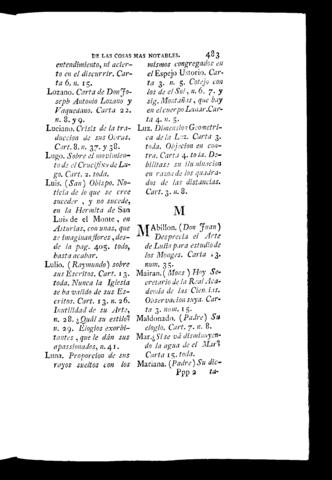 DE LAS COSAS MAS NOTABLES. 483
entendimiento, ni acier-
to en el discurrir. Car-
ta 6. n. 15.
Lozano. Carta de Don Jo-
seph Antonio Lozano y
Vaquedano. Carta 22.
n. 8. y 9.
Luciano. Crisis de la tra-
duccion de sus Obras.
Cart. 8. n. 37. y 38.
Lugo. Sobre el movimien-
to de el Crucifixo de Lu-
go. Cart. 2. toda.
Luis. (San) Obispo. No-
ticia de lo que se cree
suceder, y no sucede,
en la Hermita de San
Luis de el Monte, en
Asturias, con unas, que
se imaginan flores, des-
de la pag. 405. todo,
hasta acabar.
Lulio. (Raymundo) sobre
sus Escritos. Cart. 13.
toda. Nunca la Iglesia
se ha valido de sus Es-
critos. Cart. 13. n. 26.
Inutilidad de su Arte,
n. 28. ¿Quál su estilo?
n. 29. Elogios exorbi-
tantes, que le dán sus
apassionados, n. 41.
Luna. Proporcion de sus
rayos sueltos con los
mismos congregados en
el Espejo Ustorio. Car-
ta 3. n. 5. Cotejo con
los de el Sol, n. 6. 7. y
sig. Montañas, que hay
en el cuerpo Lunar. Car-
ta 4. n. 5.
Luz. Dimension Geometri-
ca de la Luz. Carta 3.
toda. Objecion en con-
tra. Carta 4. toda. De-
bilitase su iluminacion
en razon de los quadra-
dos de las distancias.
Cart. 3. n. 8.
M
MAbillon. (Don Juan)
Desprecia el Arte
de Lulio para estudio de
los Monges. Carta 13.
num. 35.
Mairan. (Mons) Hoy Se-
cretario de la Real Aca-
demia de las Ciencias.
Observacion suya. Car-
ta 3. num. 15.
Maldonado. (Padre) Su
elogio. Cart. 7. n. 8.
Mar. ¿Si se vá disminuyen-
do la agua de el Mar?
Carta 15. toda.
Mariana. (Padre) Su dic-
Ppp 2 ta-